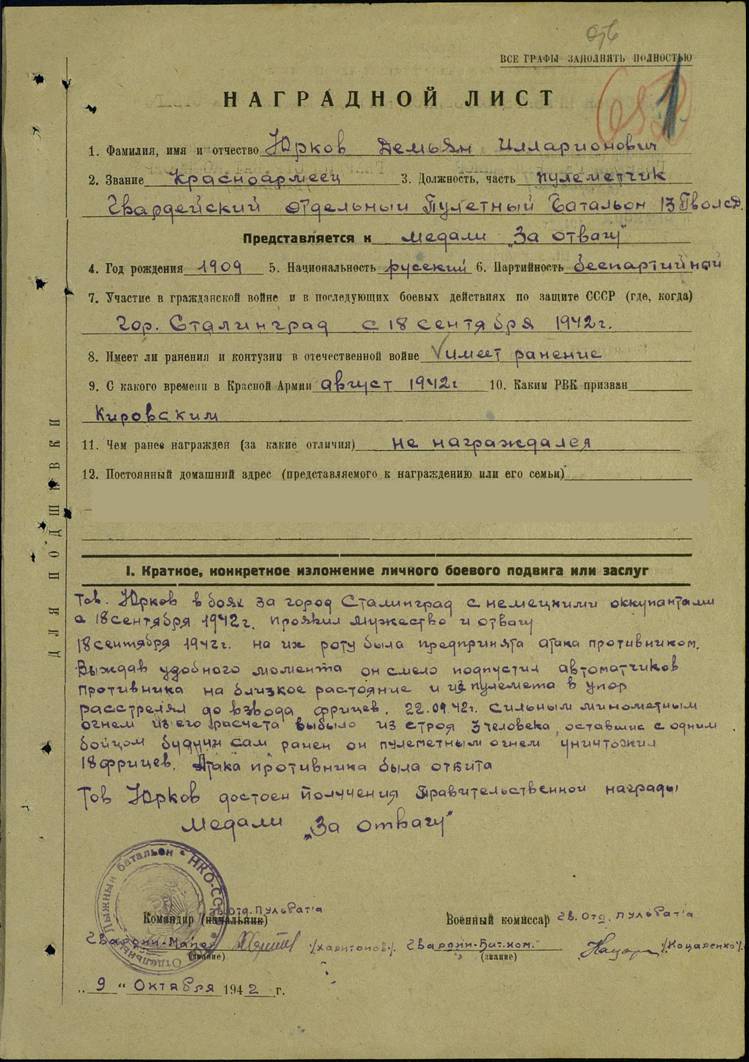 ВСЕ ГРАФЫ ЗАПОЛНЯТЬ ПОЛНОСТЬЮ
НАГРАДНОЙ ЛИСТ
1. Фамилия, имя и отчество Юрков Демьян Илларионович
2. Звание Красноармеец 3. Должность, часть пулеметчик
Гвардейский отдельный Пулетный Батальон 13
Представляется к медали „За отвагу"
4. Год рождения 1909 5. Национальность русский 6. Партийность беспартийной
7. Участие в гражданской войне и в последующих боевых действиях по защите СССР (где, когда)
гор. Сталинград с 18 сентября 1942 г.
8. Имеет ли ранения и контузии в отечественной войне имеет ранение
9. С какого времени в Красной Армии август 1942 г 10. Каким РВК призван
Кировским
11. Чем ранее награжден (за какие отличия) не награждался
12. Постоянный домашний адрес (представляемого к награждению или его семьи)
ДЛЯ ПОДШИВКИ
I. Краткое, конкретное изложение личного боевого подвига или заслуг
Тов. Юрков в боях за город Сталинград с немецкими оккупантами
с 18 сентября 1942 г. проявил мужество и отвагу
18 сентября 1942 г. на их роту была предпринята атака противником.
Выждав удобного момента он смело подпустил автоматчиков
противника на близкое растояние и из пулемета в упор
расстрелял до взвода фрицев. 22.09.42 г. сильным минометным
огнем из его расчета выбыло из строя 3 человека, оставшис с одним
бойцом будучи сам ранен он пулеметным огнем уничтожил
18 фрицев. Атака противника была отбита
Тов Юрков достоен получения Правительственной награды
медали „За отвагу"
Отдельный Лыжный батальон • НКО-СССР
отд. пульбат'а
Командир (начальник) Военный комиссар Гв. отд. пульбат'а
Гвардии-Майор /Харитонов/ Гвардии-Бат.ком.
(звание) (звание)
„9" Октября 1942 г.